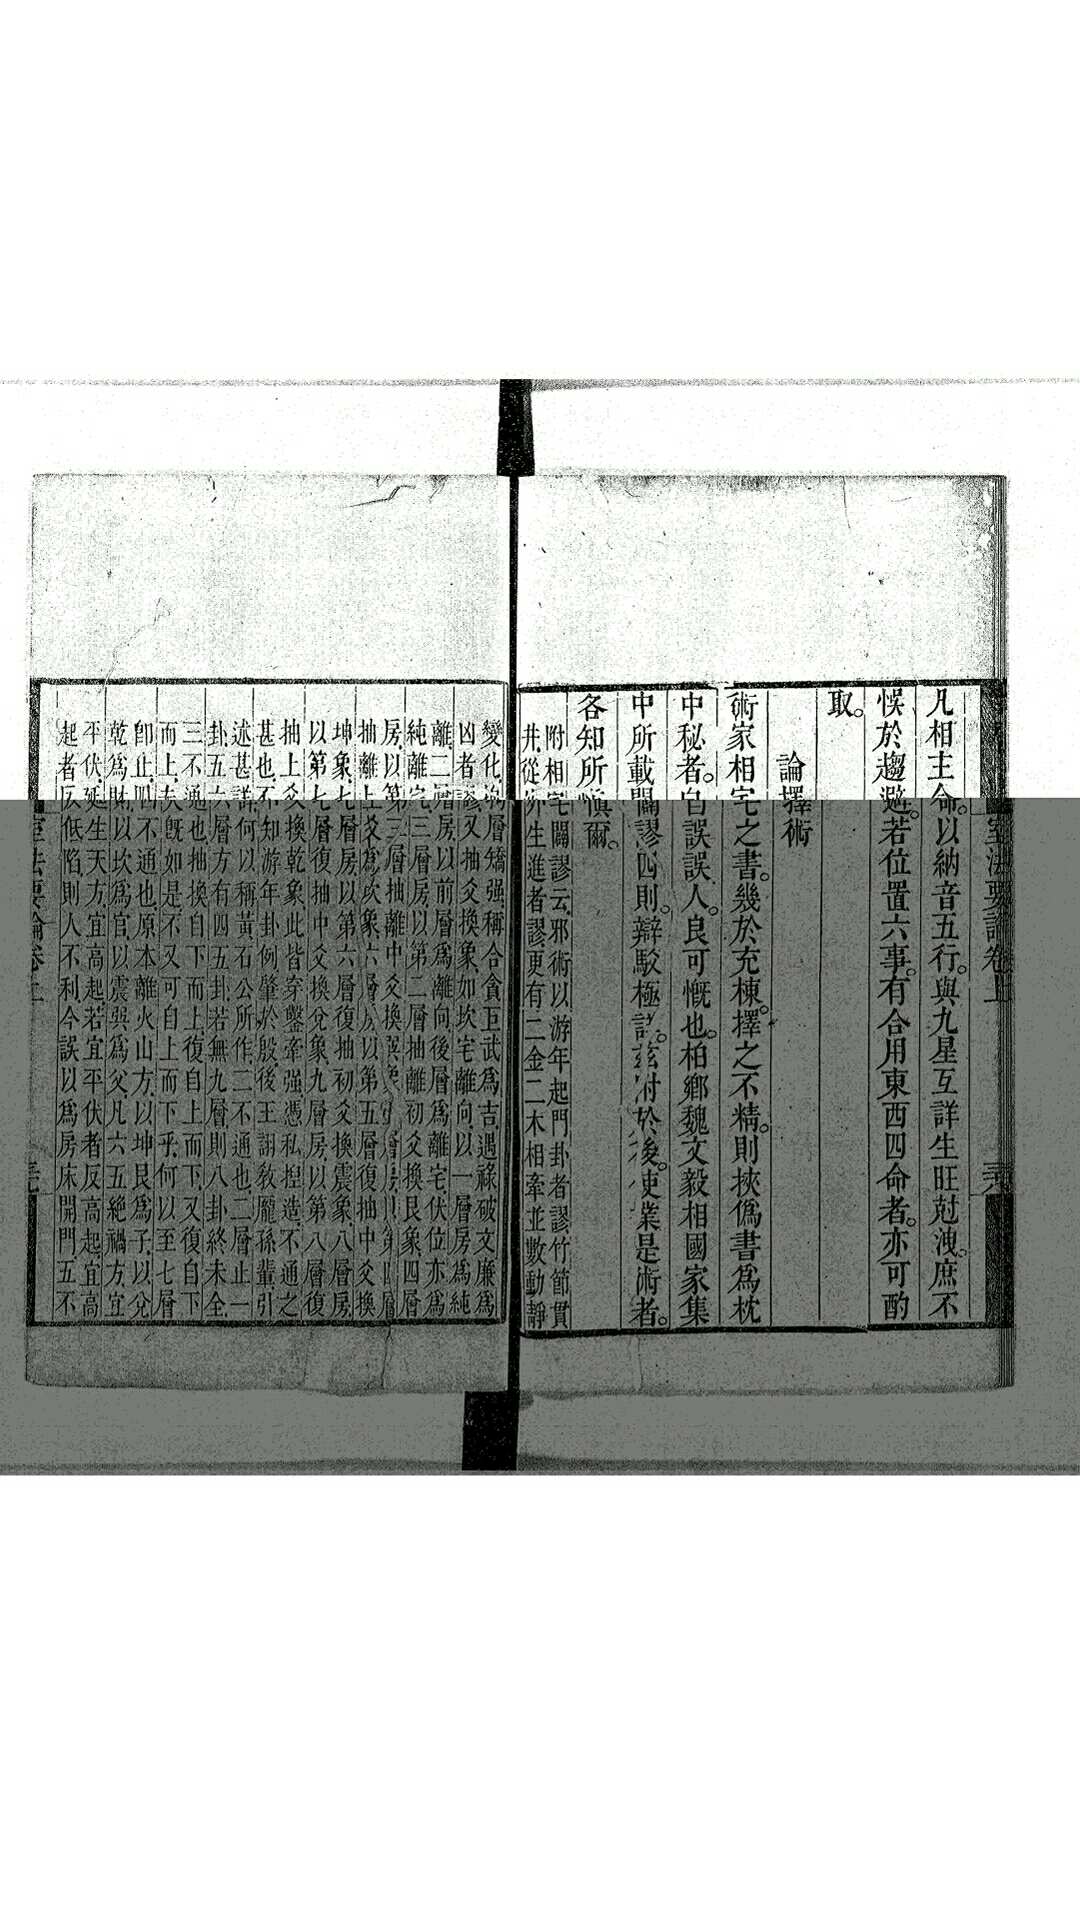 凡相主命。以納音五行。與九星互詳生旺尅洩。庶不
悞於趨避。若位置六事。有合用東西四命者。亦可酌
取。
論擇術
術家相宅之書。幾於充棟。擇之不精。則挾僞書爲枕
中秘者。自誤誤人。良可慨也。柏鄉魏文毅相國家集
中所載闢謬四則。辯駁極詳。茲附於後。使業是術者。
各知所慎爾。
附相宅闢謬云、邪術以游年起門卦者謬、竹節貫
井、從外生進者謬、更有二金二木相牽並數動靜
變化、層矯强、稱合貪巨武爲吉、遇祿破文廉爲
凶者謬、又抽爻換象、如坎宅離向、以一層房爲純
離、二層房、以前層爲離向、後層爲離宅、伏位亦爲
純離宅、三層房、以第二層抽離初爻換艮象、四層
房、以第三層抽離中爻換巽象、層房以第四層
抽離上爻爲坎象、六層房以第五層復抽中爻換
坤象、七層房、以第六層復抽初爻換震象、八層房、
以第七層復抽中爻換兌象、九層房、以第八層復
抽上爻換乾象、此皆穿鑿牽强、憑私捏造、不通之
甚也、不知游年卦例、肇於殷、後王詡敎龐孫輩、引
述甚詳、何以稱黃石公所作、二不通也、二層止一
卦、五六層方有四五卦、若無九層、則八卦終未全、
三不通也、抽換自下而上、復自上而下、又復自下
而上、夫旣如是、不又可自上而下乎、何以至七層
卽止、四不通也、原本離火山方、以坤艮爲子、以兌
乾爲財、以坎爲官、以震巽爲父、凡六五絕禍方、宜
平伏、延生天方、宜高起、若宜平伏者反高起、宜高
起者仄低陷、則人不利、今誤以爲房床開門、五不
室法要論卷上